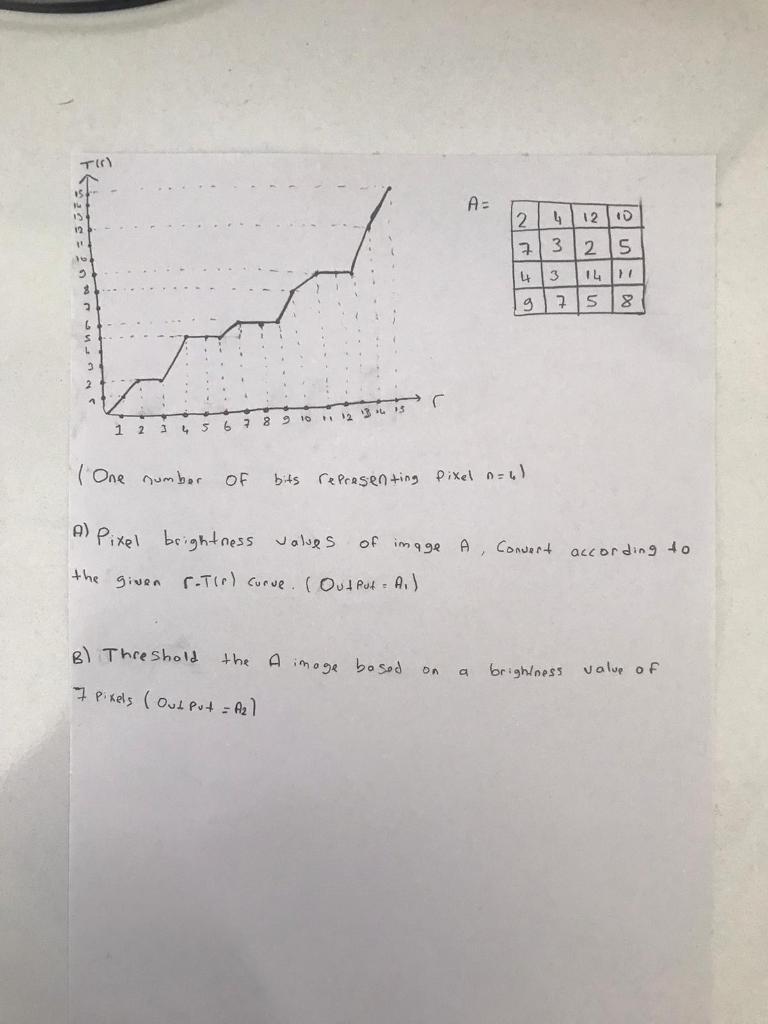 T(r)
15
14
13
12
11
10
9
8
7
6
5
4
3
2
1
1 2 3 4 5 6 7 8 9 10 11 12 13 14 15 r
A=
2 4 12 10
7 3 2 5
4 3 14 11
9 7 5 8
(One number of bits representing Pixel n=4)
A) Pixel brightness values of image A, Convert according to
the given r-T(r) curve. (Output = A1)
B) Threshold the A image based on a brightness value of
7 Pixels (Output = A2)